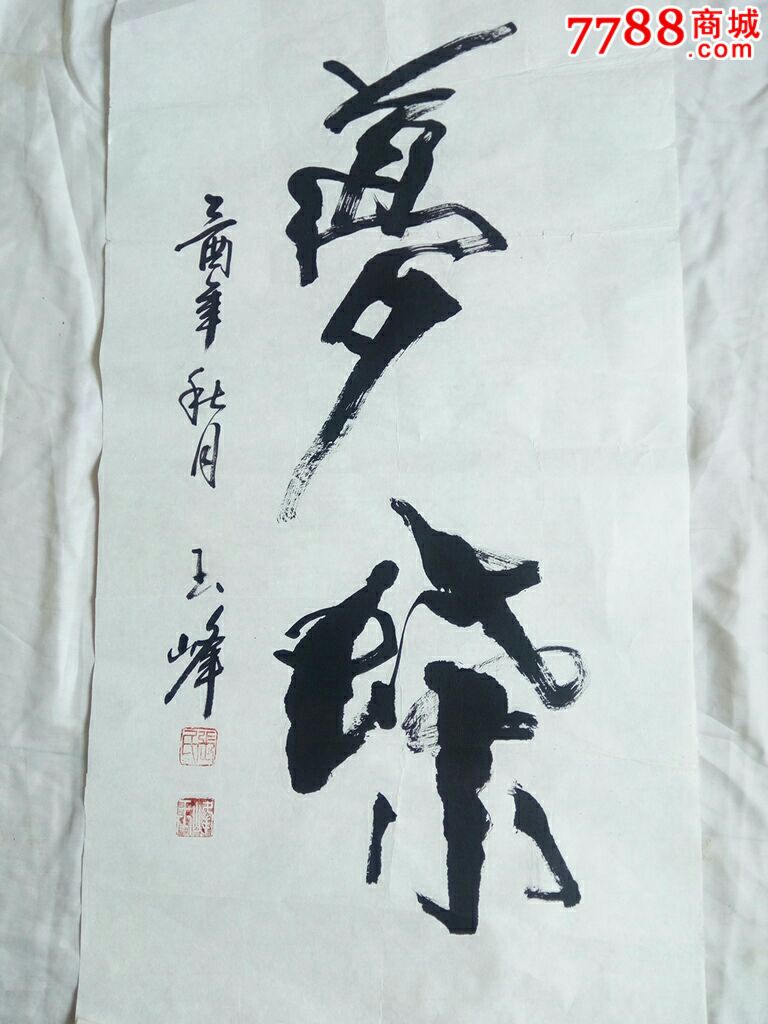 7788商城
.com
夢
乙酉年 秋月 玉峰